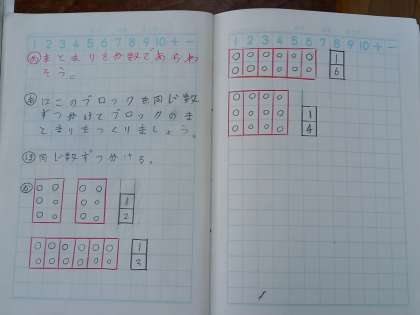 1 2 3 4 5 6 7 8 9 10 + −
め まとまりを分数であらわ
そう。
はこのブロックを同じ数
ずつ分けてブロックのま
とまりをつくりましょう。
同じ数ずつ分ける。
1
2
1
1 2 3 4 5 6 7 8 9 10 + −
1
6
1
4